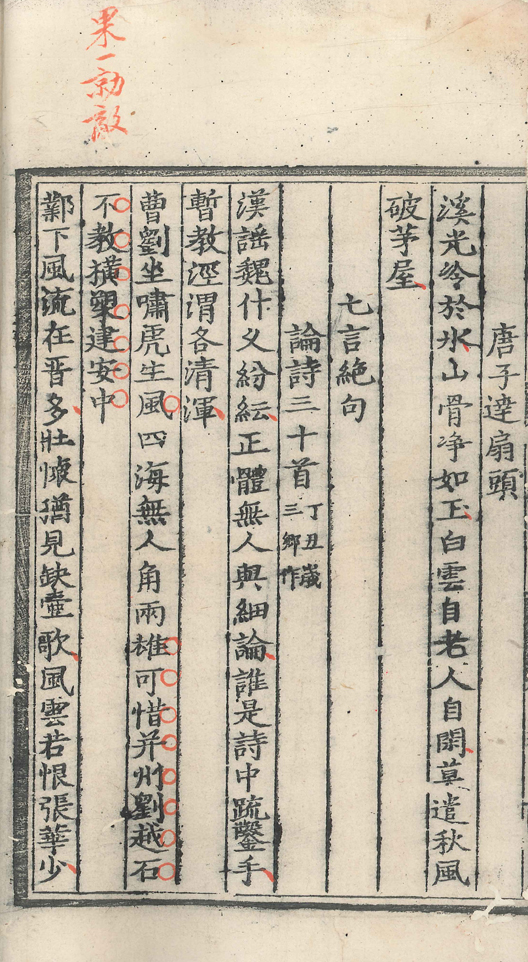 果一勍敵
唐子達扇頭
溪光冷於氷山骨净如玉白雲自老人自閑莫遣秋風
破茅屋
七言絕句
論詩三十首丁丑歲三鄉作
漢謠魏什乆紛紜正體無人與細論誰是詩中䟽鑿手
暫教涇渭各清渾
曹劉坐嘯虎生風四海無人角兩雄可惜并州劉越石
不教橫槊建安中
鄴下風流在晋多壮懐猶見缺壷歌風雲若恨張華少